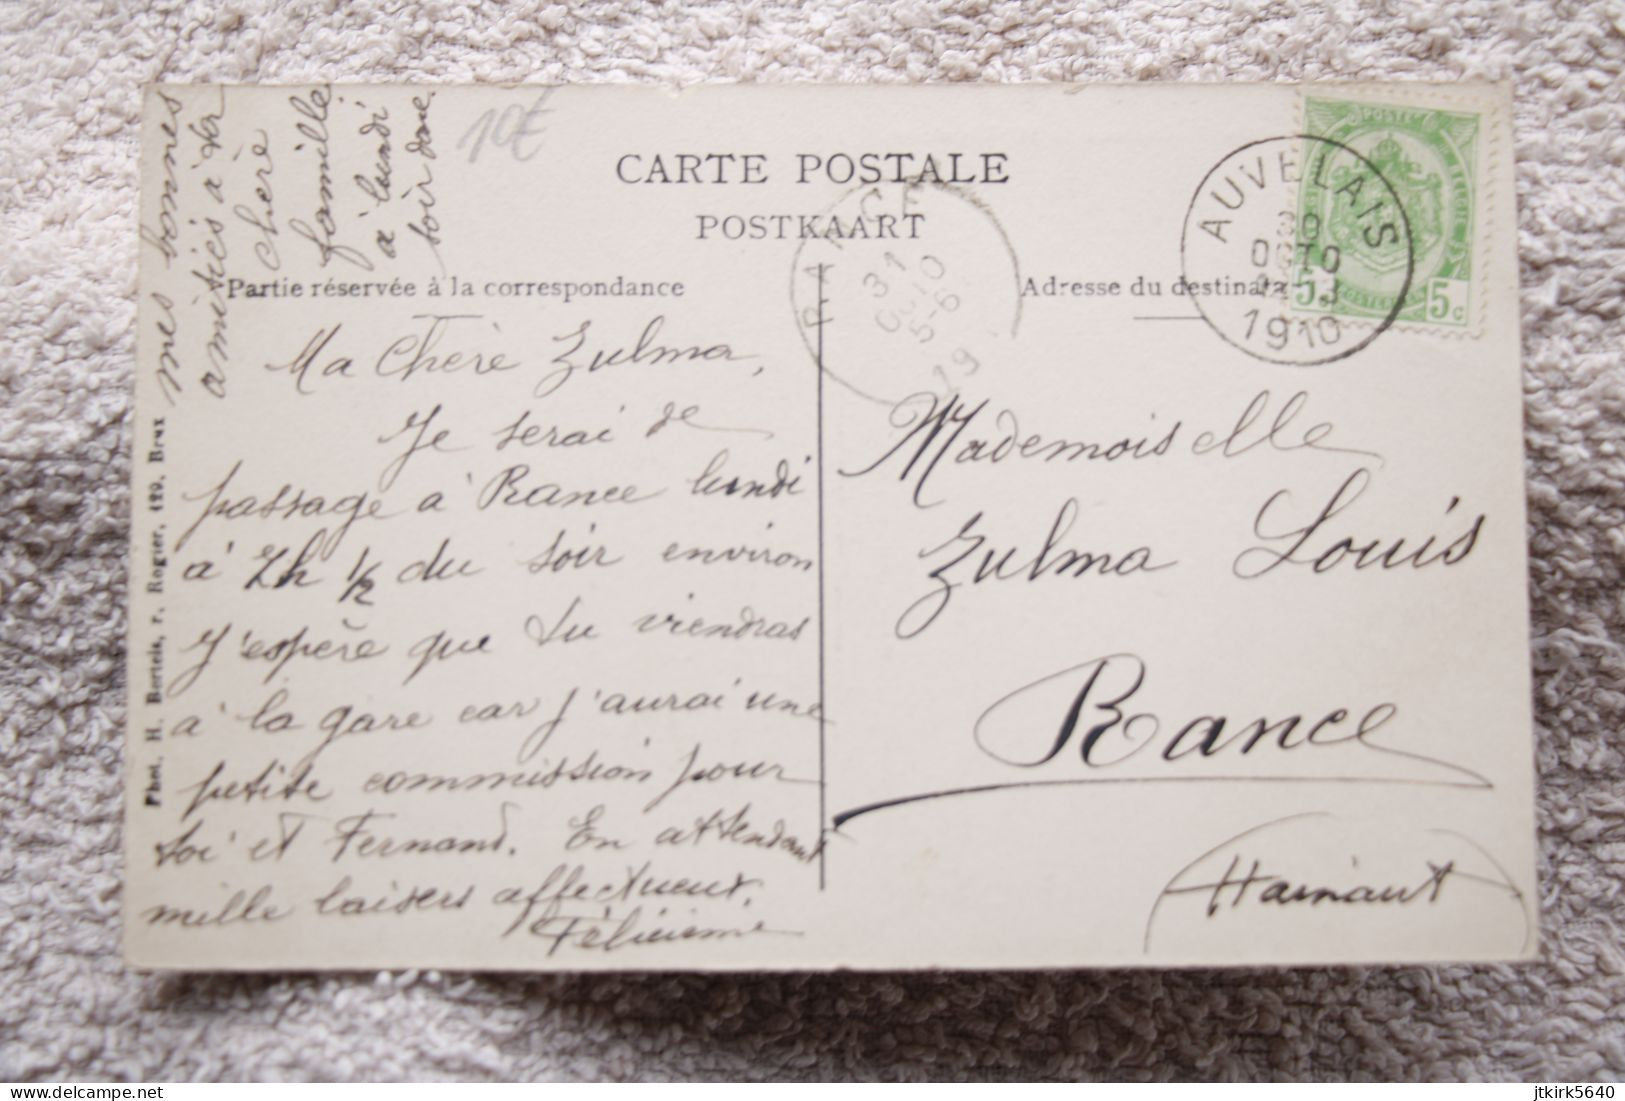 CARTE POSTALE
POSTKAART
Partie réservée à la correspondance
Adresse du destinata
10€
Ma Chère Zulma,
Je serai de
passage à Rance lundi
à 7h 1/2 du soir environ
J'espère que tu viendras
à la gare car j'aurai une
petite commission pour
toi et Fernand. En attendant
mille baisers affectueux.
Félicienne
mes bonnes
amitiés à ta
chère
famille
à lundi
soir donc.
Mademoiselle
Zulma Louis
Rance
Hainaut
AUVELAIS
OCTO
1910
RANCE
31
OCTO
5-6
19
POSTES
5 5c
Phot. H. Bertels, r. Rogier, 129, Brux
delcampe.net
jtkirk5640